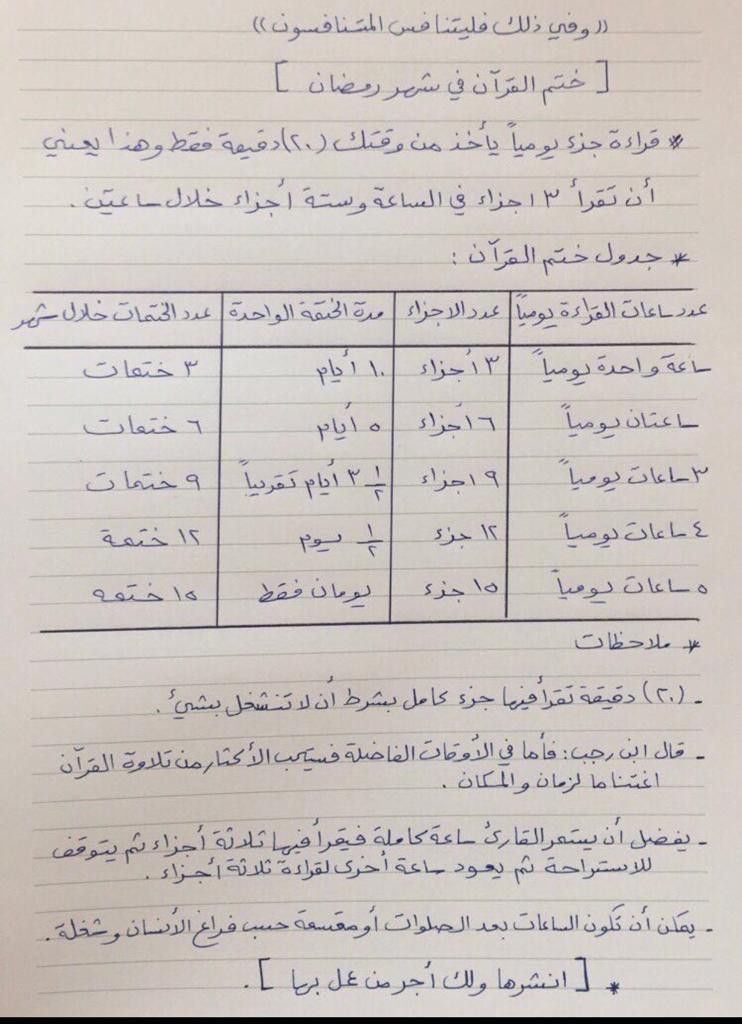 ((وفي ذلك فليتنافس المتنافسون))
[ ختم القرآن في شهر رمضان ]
* قراءة جزء يومياً يأخذ من وقتك (٢٠) دقيقة فقط وهذا يعني
أن تقرأ ٣ اجزاء في الساعة وستة أجزاء خلال ساعتين .
* جدول ختم القرآن :
عدد ساعات القراءة يومياً عدد الاجزاء مدة الختمة الواحدة عدد الختمات خلال شهر
ساعة واحدة يومياً ٣ أجزاء ١٠ أيام ٣ ختمات
ساعتان يومياً ٦ أجزاء ٥ أيام ٦ ختمات
٣ ساعات يومياً ٩ اجزاء ٣ ١/٢ أيام تقريباً ٩ ختمات
٤ ساعات يومياً ١٢ جزء ١/٢ يوم ١٢ ختمة
٥ ساعات يومياً ١٥ جزء يومان فقط ١٥ ختمه
* ملاحظات
- (٢٠) دقيقة تقرأ فيها جزء كامل بشرط أن لا تنشغل بشيء .
- قال ابن رجب : فأما في الأوقات الفاضلة فيستحب الأكثار من تلاوة القرآن
اغتناما لزمان والمكان .
- يفضل أن يستمر القارئ ساعة كاملة فيقرأ فيها ثلاثة أجزاء ثم يتوقف
للاستراحة ثم يعود ساعة أخرى لقراءة ثلاثة أجزاء .
- يمكن أن تكون الساعات بعد الصلوات أو مقسمة حسب فراغ الأنسان وشغلة .
* [ انشرها ولك أجر من عمل بها ] .